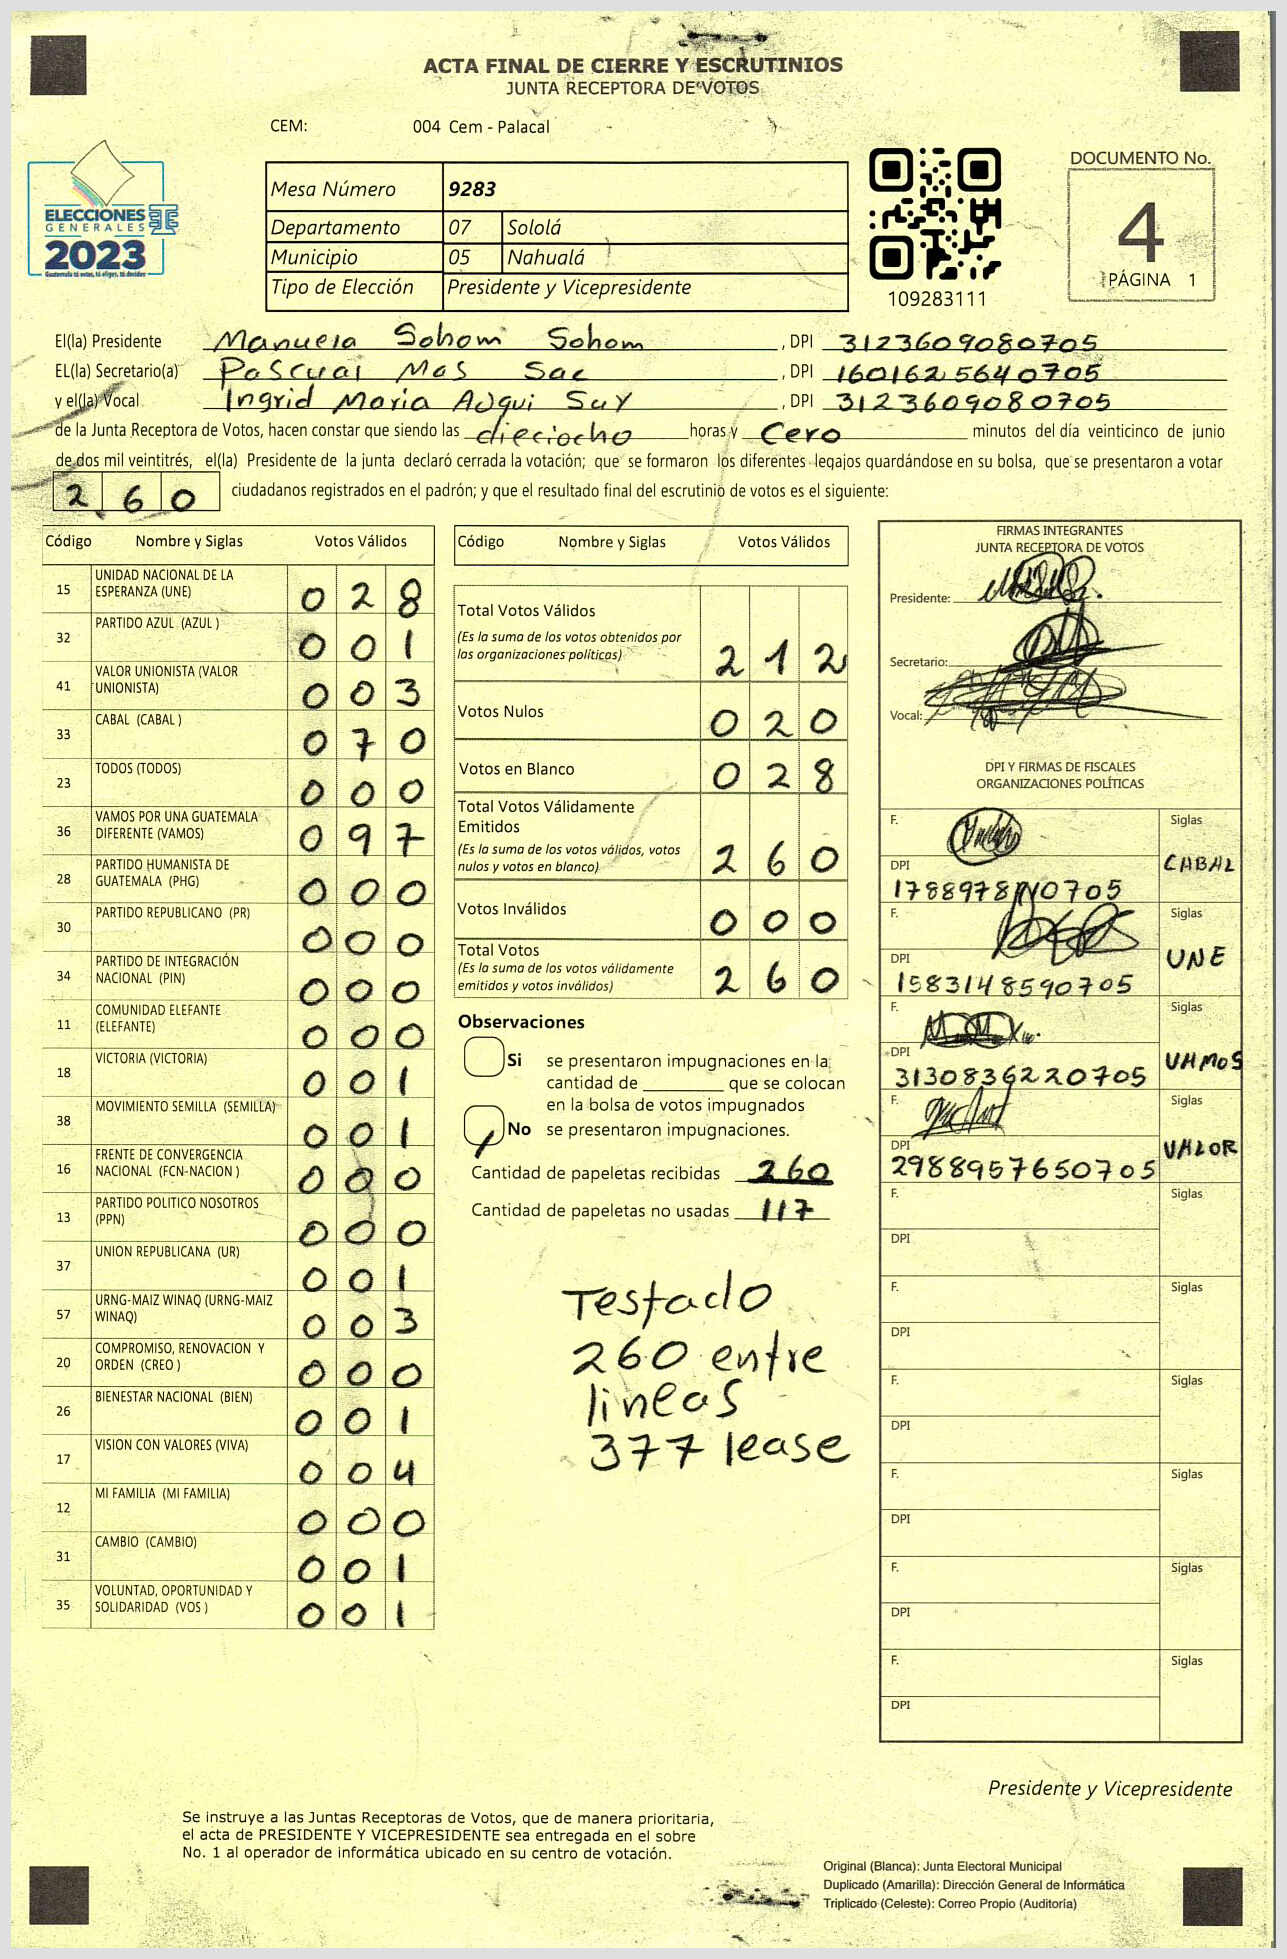 ACTA FINAL DE CIERRE Y ESCRUTINIOS
JUNTA RECEPTORA DE VOTOS
CEM: 004 Cem - Palacal
ELECCIONES
GENERALES
2023
Guatemala tú votas, tú eliges, tú decides
Mesa Número 9283
Departamento 07 Sololá
Municipio 05 Nahualá
Tipo de Elección Presidente y Vicepresidente
109283111
DOCUMENTO No.
4
PÁGINA 1
El(la) Presidente Manuela Sohom Sohom , DPI 3123609080705
EL(la) Secretario(a) Pascual Mas Sac , DPI 1601625640705
y el(la) Vocal Ingrid Maria Suy , DPI 3123609080705
de la Junta Receptora de Votos, hacen constar que siendo las dieciocho horas y Cero minutos del día veinticinco de junio
de dos mil veintitrés, el(la) Presidente de la junta declaró cerrada la votación; que se formaron los diferentes legajos guardándose en su bolsa, que se presentaron a votar
260 ciudadanos registrados en el padrón; y que el resultado final del escrutinio de votos es el siguiente:
Código Nombre y Siglas Votos Válidos
15 UNIDAD NACIONAL DE LA ESPERANZA (UNE) 028
32 PARTIDO AZUL (AZUL ) 001
41 VALOR UNIONISTA (VALOR UNIONISTA) 003
33 CABAL (CABAL ) 070
23 TODOS (TODOS) 000
36 VAMOS POR UNA GUATEMALA DIFERENTE (VAMOS) 097
28 PARTIDO HUMANISTA DE GUATEMALA (PHG) 000
30 PARTIDO REPUBLICANO (PR) 000
34 PARTIDO DE INTEGRACIÓN NACIONAL (PIN) 000
11 COMUNIDAD ELEFANTE (ELEFANTE) 000
18 VICTORIA (VICTORIA) 001
38 MOVIMIENTO SEMILLA (SEMILLA) 001
16 FRENTE DE CONVERGENCIA NACIONAL (FCN-NACION ) 000
13 PARTIDO POLITICO NOSOTROS (PPN) 000
37 UNION REPUBLICANA (UR) 001
57 URNG-MAIZ WINAQ (URNG-MAIZ WINAQ) 003
20 COMPROMISO, RENOVACION Y ORDEN (CREO ) 000
26 BIENESTAR NACIONAL (BIEN) 001
17 VISION CON VALORES (VIVA) 004
12 MI FAMILIA (MI FAMILIA) 000
31 CAMBIO (CAMBIO) 001
35 VOLUNTAD, OPORTUNIDAD Y SOLIDARIDAD (VOS ) 001
Código Nombre y Siglas Votos Válidos
Total Votos Válidos
(Es la suma de los votos obtenidos por
las organizaciones políticas) 212
Votos Nulos 020
Votos en Blanco 028
Total Votos Válidamente
Emitidos
(Es la suma de los votos válidos, votos
nulos y votos en blanco) 260
Votos Inválidos 000
Total Votos
(Es la suma de los votos válidamente
emitidos y votos inválidos) 260
Observaciones
Si se presentaron impugnaciones en la
cantidad de ________ que se colocan
en la bolsa de votos impugnados
No se presentaron impugnaciones.
Cantidad de papeletas recibidas 260
Cantidad de papeletas no usadas 117
Testado
260 entre
lineas
377 lease
FIRMAS INTEGRANTES
JUNTA RECEPTORA DE VOTOS
Presidente:
Secretario:
Vocal:
DPI Y FIRMAS DE FISCALES
ORGANIZACIONES POLÍTICAS
F. Siglas
CABAL
DPI
F. Siglas
UNE
DPI
1583148590705
F. Siglas
VAMOS
DPI
3130836220705
F. Siglas
VALOR
DPI
2988957650705
F. Siglas
DPI
F. Siglas
DPI
F. Siglas
DPI
F. Siglas
DPI
F. Siglas
DPI
F. Siglas
DPI
Presidente y Vicepresidente
Se instruye a las Juntas Receptoras de Votos, que de manera prioritaria,
el acta de PRESIDENTE Y VICEPRESIDENTE sea entregada en el sobre
No. 1 al operador de informática ubicado en su centro de votación.
Original (Blanca): Junta Electoral Municipal
Duplicado (Amarilla): Dirección General de Informática
Triplicado (Celeste): Correo Propio (Auditoría)